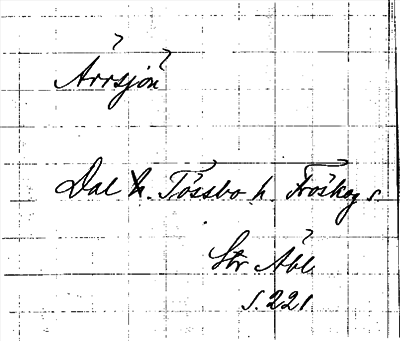 Ärrsjön
Dal h. Tössbo h Fröskog s
Str Åbl
s. 221